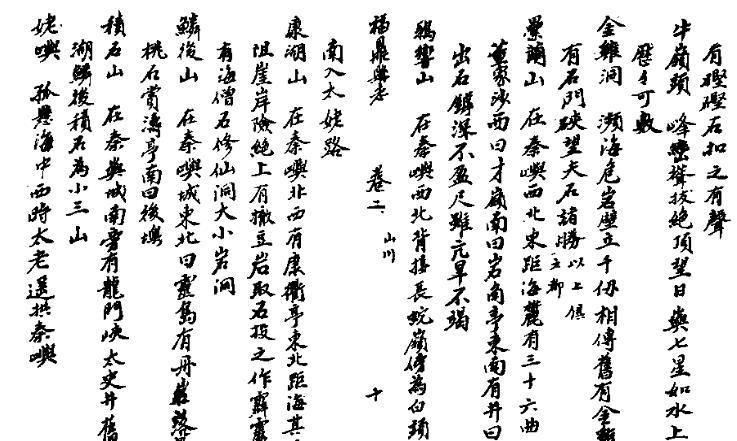 有礶礶石扣之有聲
牛嶺頭 峰巒聳拔絕頂望日與七星如水上
歷歷可數
金雞洞 瀕海危岩壁立千仞相傳舊有金雞
有石門碶望夫石諸勝以上俱五都
疊蘭山 在秦嶼西北東距海麓有三十六曲
董家沙西曰才嶺南曰岩角亭東南有井曰
出石鏬深不盈尺雖亢旱不竭
鵶髻山 在秦嶼西北背接長蛇嶺傍為白頭
福鼎縣志 卷二 山川 十
南入太姥路
康湖山 在秦嶼北西有康衢亭東北距海其
阻崖岸險絕上有撒豆岩取石投之作霹靂
有海僧石修仙洞大小岩洞
鱗後山 在秦嶼城東北曰靈島有丹
桃石賞濤亭南曰後澳
積石山 在秦嶼城南旁有龍門峽太史井舊
湖鱗後積石為小三山
姥嶼 孤懸海中西時太老遥拱秦嶼